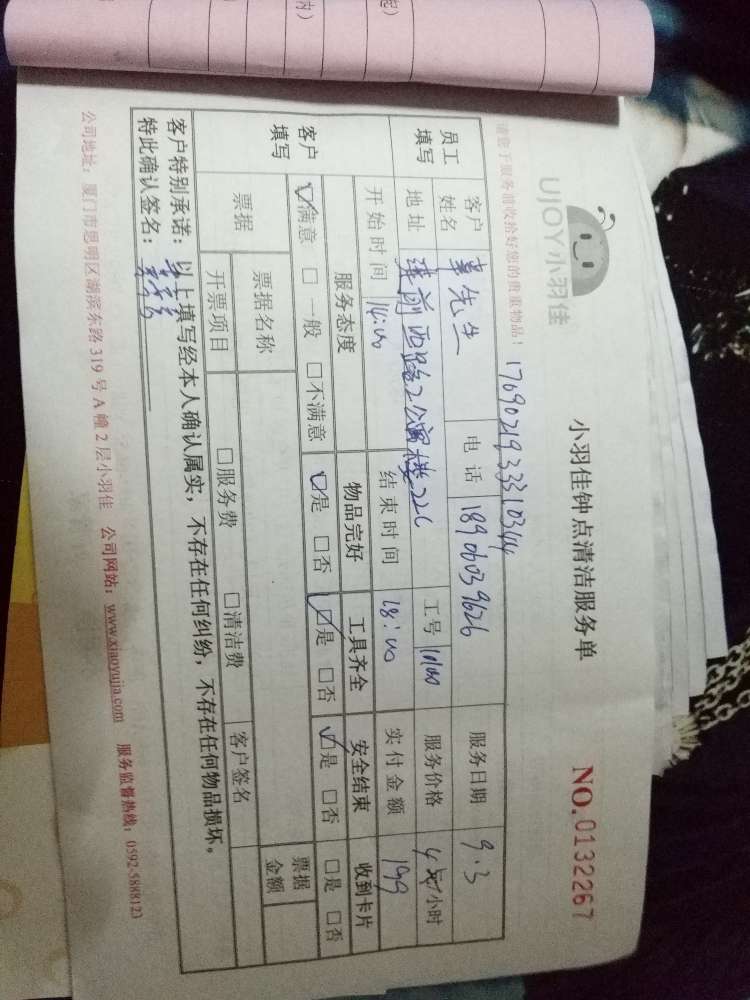 起)
内)
UJOY小羽佳
小羽佳钟点清洁服务单
NO.0132267
请您于服务前收拾好您的贵重物品!
1769021933310344
员工填写
客户姓名
先生
电话
18906039626
服务日期
9.3
地址
莲前西路2公寓楼226
工号
10100
服务价格
4 元/小时
开始时间
14:00
结束时间
18:00
实付金额
199
客户填写
服务态度
物品完好
工具齐全
安全结束
收到卡片
☑满意 □一般 □不满意
☑是 □否
☑是 □否
☑是 □否
□是 □否
票据
票据名称
票据金额
开票项目
□服务费 □清洁费
客户签名
客户特别承诺:以上填写经本人确认属实,不存在任何纠纷,不存在任何物品损坏。
特此确认签名:
公司地址:厦门市思明区湖滨东路319号A幢2层小羽佳 公司网站:www.xiaoyujia.com 服务监督热线:0592-5888123